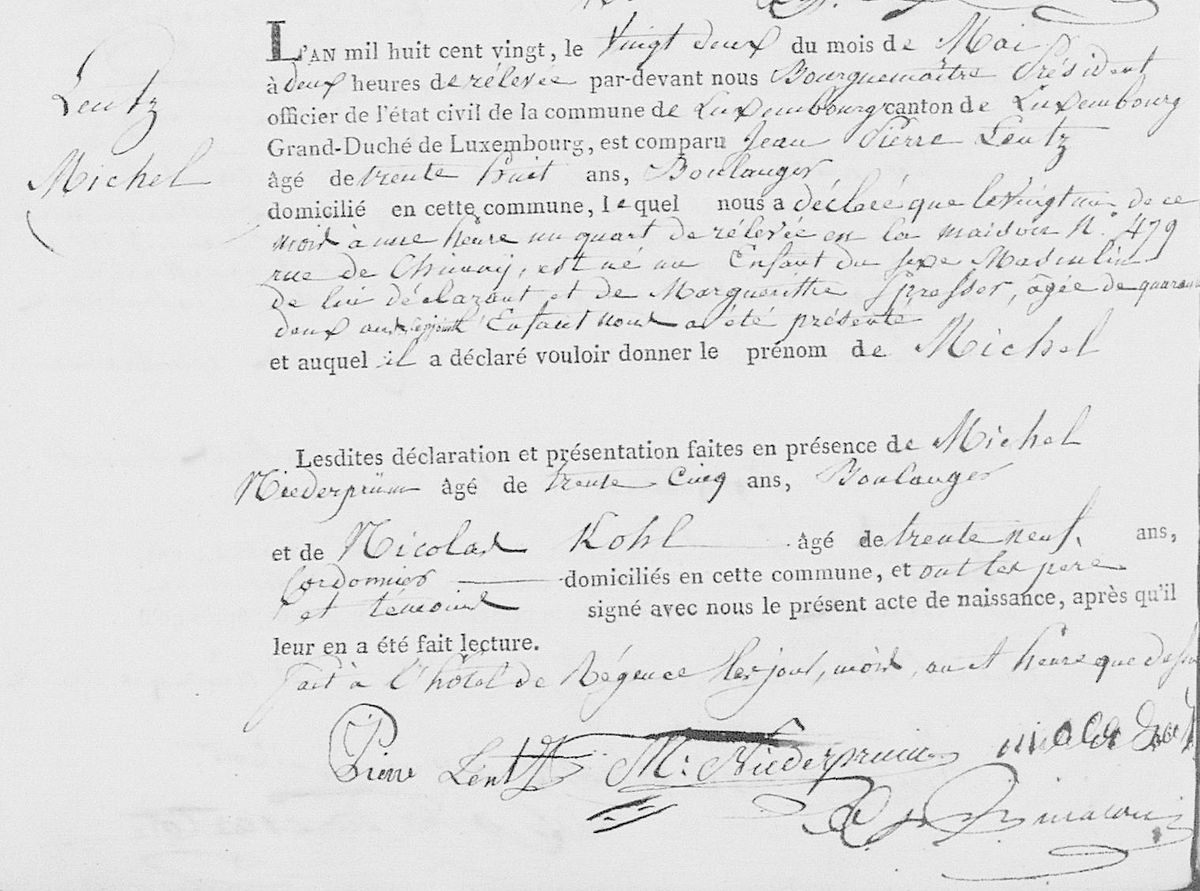 Lentz
Michel
L'AN mil huit cent vingt, le Vingt deux du mois de Mai
à deux heures de rélevée par-devant nous Bourguemaître Président
officier de l'état civil de la commune de Luxembourg canton de Luxembourg
Grand-Duché de Luxembourg, est comparu Jean Pierre Lentz
âgé de trente huit ans, Boulanger
domicilié en cette commune, lequel nous a déclaré que le vingt un de ce
mois à une heure un quart de rélevée en la maison N.° 479
rue de Chimay, est né un Enfant du sexe Masculin
de lui déclarant et de Marguerithe Spresser, agée de quarante
deux ans, l'Enfant nous a été présenté
et auquel il a déclaré vouloir donner le prénom de Michel
Lesdites déclaration et présentation faites en présence de Michel
Niederprüm âgé de trente Cinq ans, Boulanger
et de Nicolas Kohl âgé de trente neuf, ans,
Cordonnier domiciliés en cette commune, et ont les pere
et témoins signé avec nous le présent acte de naissance, après qu'il
leur en a été fait lecture.
fait à l'hôtel de Régence les jour, mois, an et heure que dessus
Pierre Lentz M: Niederprüm